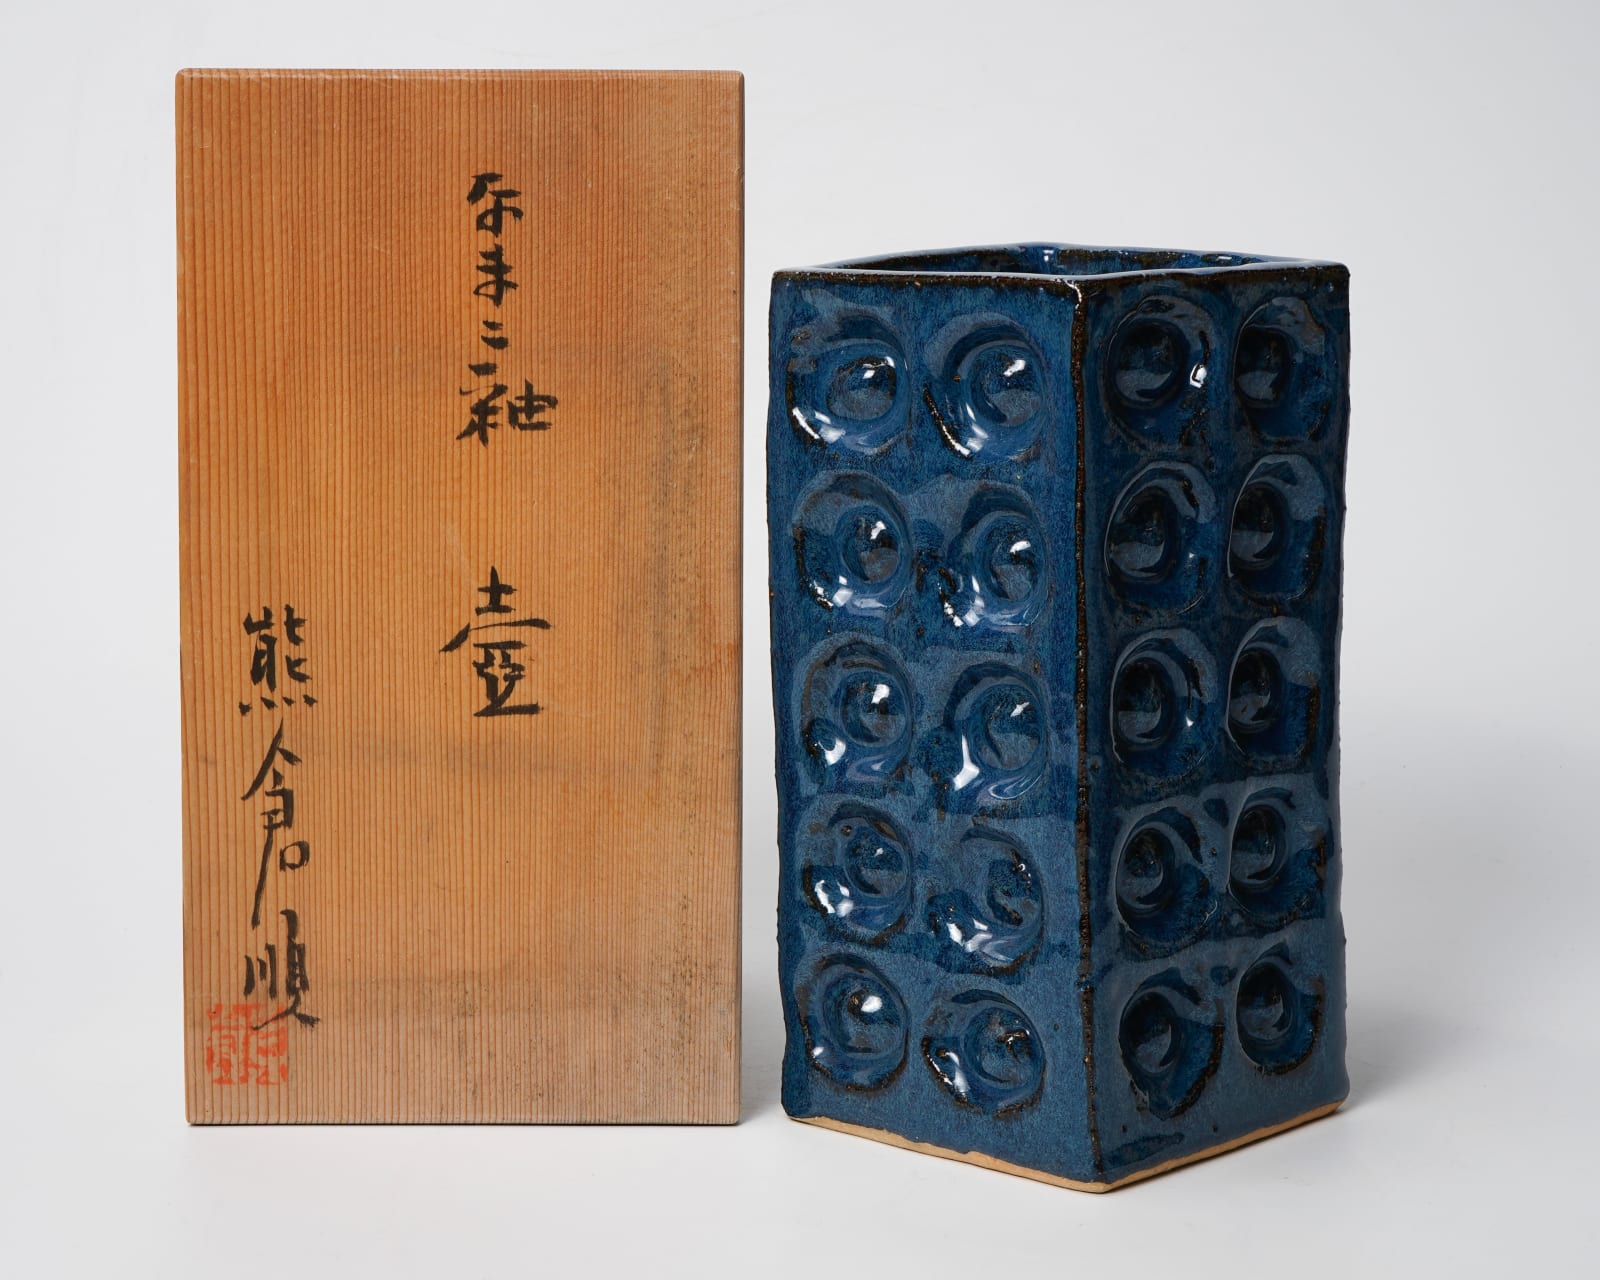 なまこ釉 壺
熊倉順